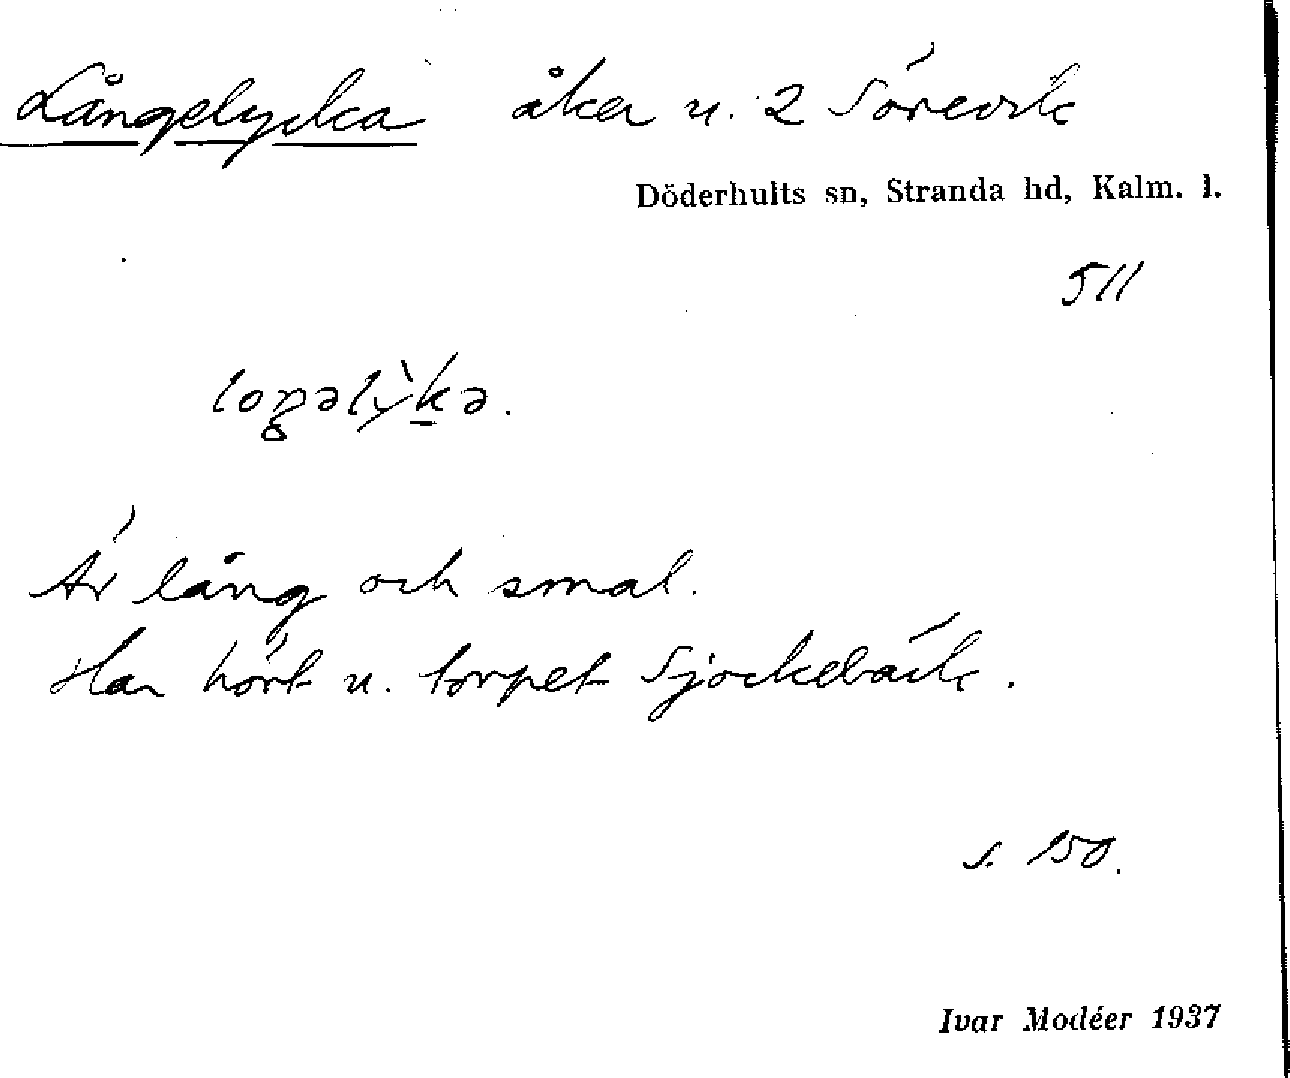 Långelycka åker u. 2 Sörevik
Döderhults sn, Stranda hd, Kalm. l.
511
loŋəlỳkə.
Är lång och smal.
Har hört u. torpet Sjöckebäck.
s. 150.
Ivar Modéer 1937